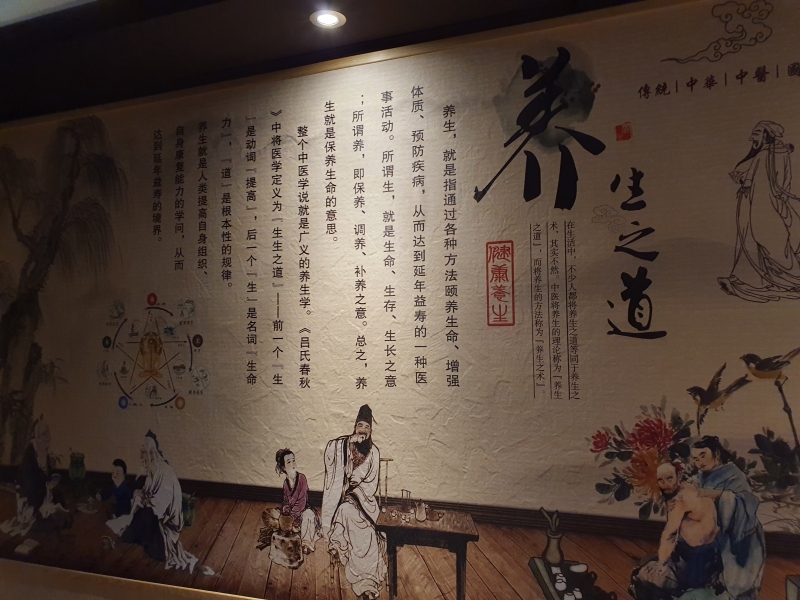 傳統|中華|中醫|國
养
生之道
健康養生
在生活中，不少人都将养生之道等同于养生之
术，其实不然。中医将养生的理论称为「养生
之道」，而将养生的方法称为「养生之术」。
养生，就是指通过各种方法颐养生命、增强
体质、预防疾病，从而达到延年益寿的一种医
事活动。所谓生，就是生命、生存、生长之意
；所谓养，即保养、调养、补养之意。总之，养
生就是保养生命的意思。
整个中医学说就是广义的养生学。《吕氏春秋
》中将医学定义为『生生之道』——前一个『生
』是动词『提高』，后一个『生』是名词『生命
力』，『道』是根本性的规律。
养生就是人类提高自身组织、
自身康复能力的学问，从而
达到延年益寿的境界。